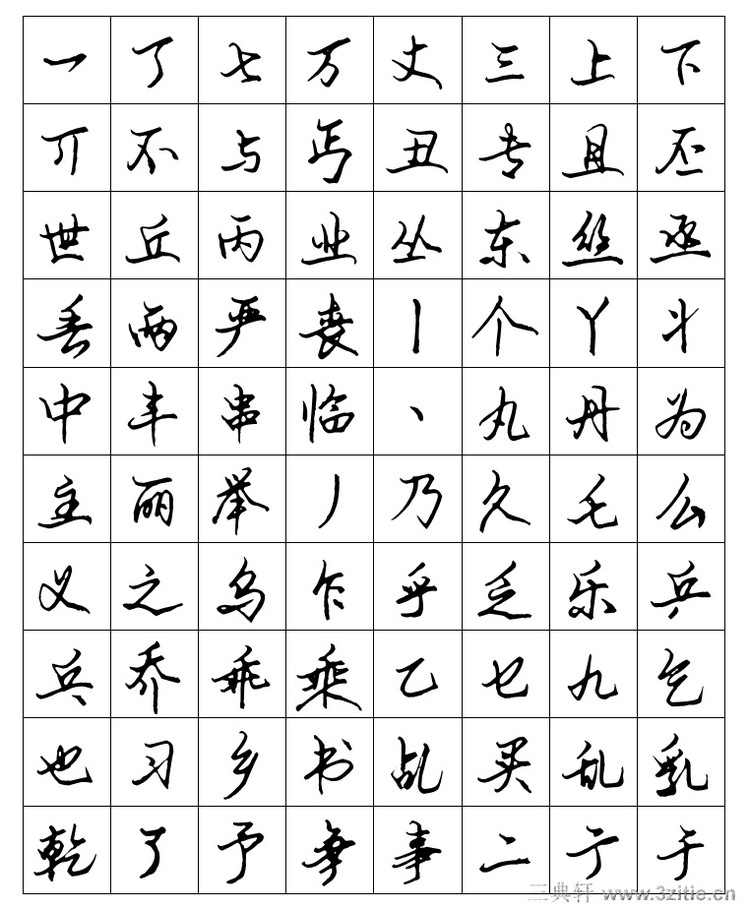 一 丁 七 万 丈 三 上 下
丌 不 与 丐 丑 专 且 丕
世 丘 丙 业 丛 东 丝 丞
丢 两 严 丧 丨 个 丫 丬
中 丰 串 临 丶 丸 丹 为
主 丽 举 丿 乃 久 乇 么
义 之 乌 乍 乎 乏 乐 乒
乓 乔 乖 乘 乙 乜 九 乞
也 习 乡 书 乩 买 乱 乳
乾 了 予 争 事 二 亍 于
三典轩 www.3zitie.cn